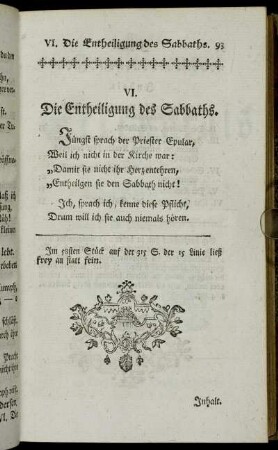 VI. Die Entheiligung des Sabbaths. 93
VI.
Die Entheiligung des Sabbaths.
Jüngst sprach der Priester Epular,
Weil ich nicht in der Kirche war:
„Damit sie nicht ihr Herz entehren,
„Entheilgen sie den Sabbath nicht!
Ich, sprach ich, kenne diese Pflicht,
Drum will ich sie auch niemals hören.
Im 18sten Stück auf der 315 S. der 15 Linie ließ
frey an statt fein.
Inhalt.